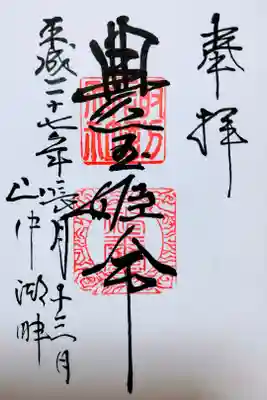 奉拝
豊玉姫命
平成二十七年長月十三日
山中湖畔